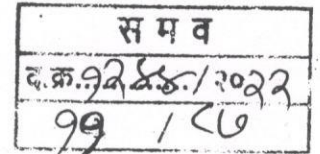 स म व
द. क्र. १२४४ / २०२२
११ / ८७